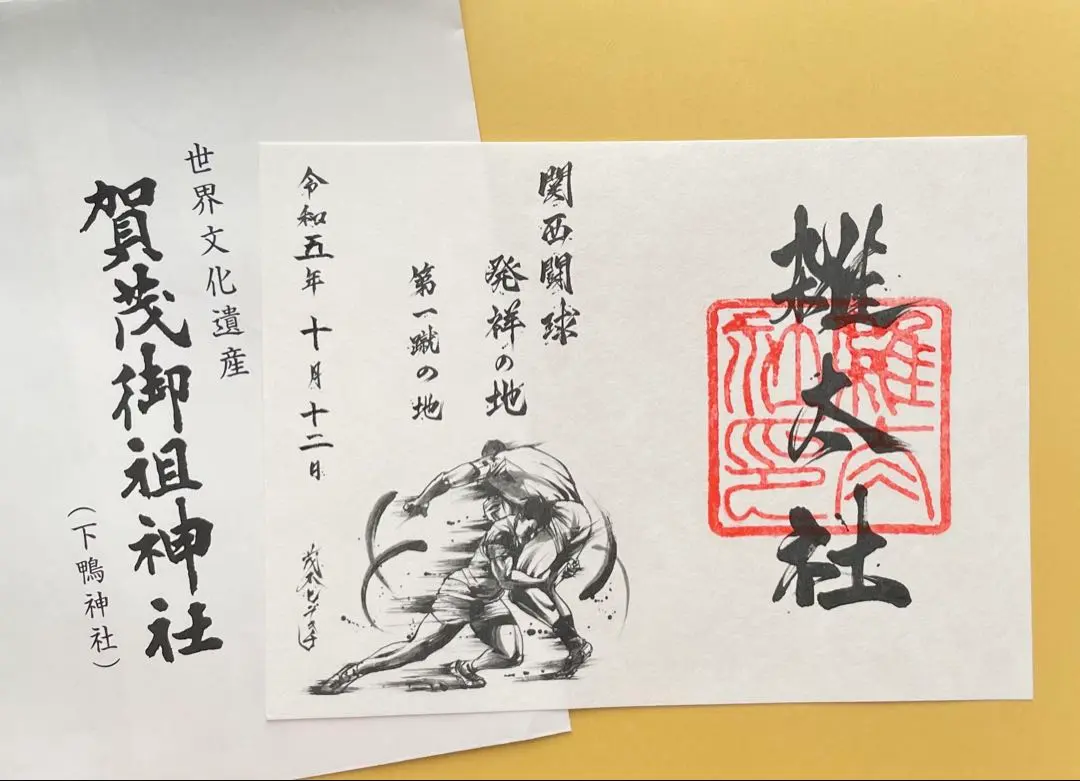 雑太社
雑太社印
関西闘球
発祥の地
第一蹴の地
令和五年 十月十二日
茂本ヒデキチ
世界文化遺産
賀茂御祖神社
（下鴨神社）